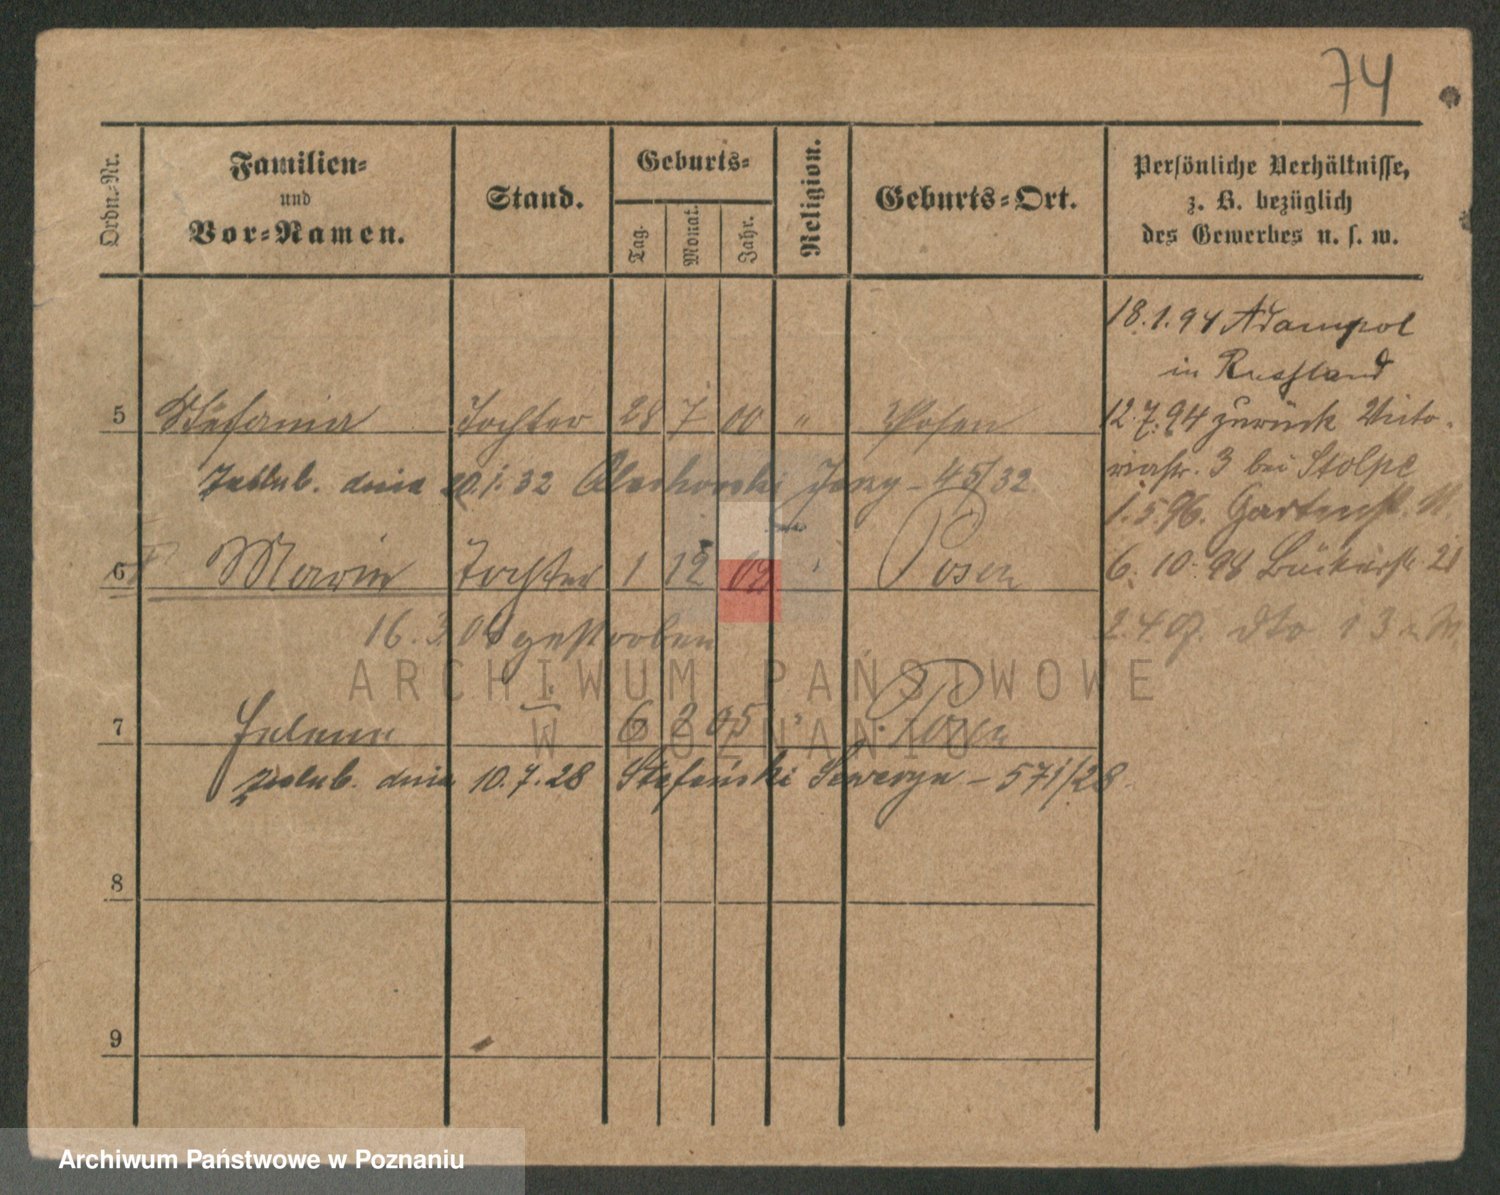 74
Ordn.-Nr.
Familien-
und
Vor-Namen.
Stand.
Geburts-
Tag.
Monat.
Jahr.
Religion.
Geburts-Ort.
Persönliche Verhältnisse,
z. B. bezüglich
des Gewerbes u. s. w.
18.1.94 Adampol
in Russland
5 Stefania Tochter 28 7 00 " Posen
12.7.94 zurück Victo-
riastr. 3 bei Stolpe
zaślub. dnia 20.1.32 Jerzy - 45/32
1.5.96. Gartenstr.
6 Marie Tochter 1 12 02 " Posen
6. 10. 98 21
16. 3. gestorben
2.4. dto 13
7 Helene 6 2 05 " Posen
zaślub. dnia 10.7.28 Stefański Seweryn - 571/28
8
9
ARCHIWUM PAŃSTWOWE
W POZNANIU
Archiwum Państwowe w Poznaniu